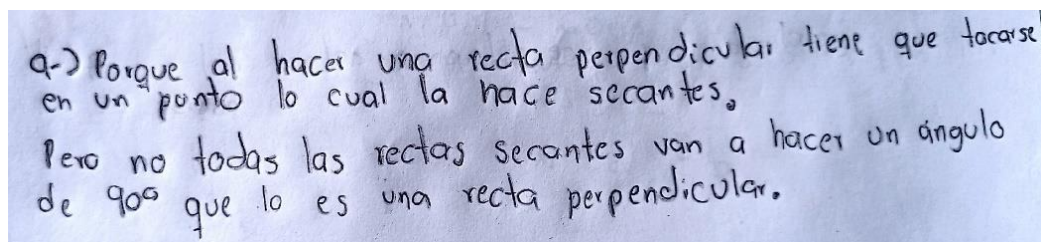 a-) Porque al hacer una recta perpendicular tiene que tocarse
en un punto lo cual la hace secantes.
Pero no todas las rectas secantes van a hacer un ángulo
de 90° que lo es una recta perpendicular.